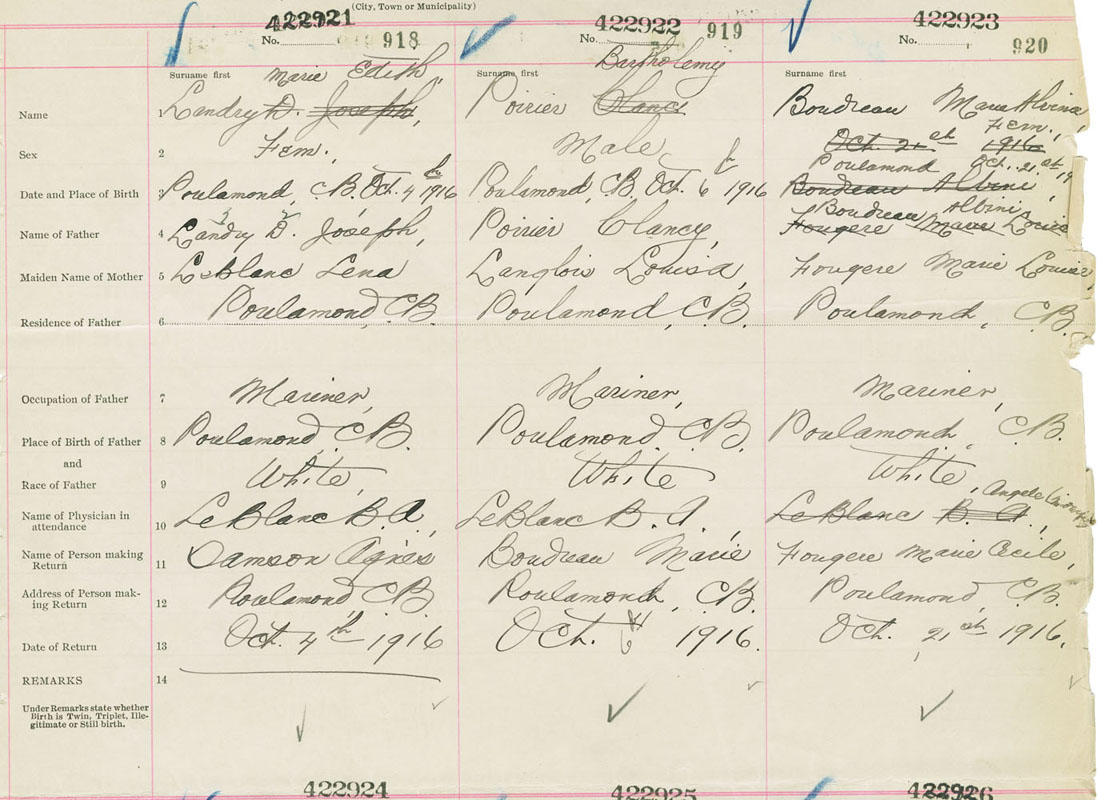 (City, Town or Municipality)
422921 422922 422923
No. 918 No. 919 No. 920
Surname first Marie Edith, Surname first Bartholemy Surname first
Name 1 Landry D. Joseph, Poirier Clancy Boudreau Marie Alvina,
Sex 2 Fem. Male Fem.,
Oct. 21st 1916
Poulamond Oct. 21st 19
Date and Place of Birth 3 Poulamond, C.B. Oct. 4th 1916 Poulamond, C.B. Oct. 6th 1916 Boudreau Albini,
Boudreau Albini,
Name of Father 4 Landry D. Joseph, Poirier Clancy, Fougere Marie Louise
Maiden Name of Mother 5 Leblanc Lena Langlois Louisa, Fougere Marie Louise,
Residence of Father 6 Poulamond, C.B. Poulamond, C.B. Poulamond, C.B.
Occupation of Father 7 Mariner, Mariner, Mariner,
Place of Birth of Father 8 Poulamond, C.B. Poulamond, C.B. Poulamond, C.B.
and
Race of Father 9 White, White White,
Angele
Name of Physician in
attendance 10 LeBlanc B.A., LeBlanc B.A. LeBlanc B.A.,
Name of Person making
Return 11 Samson Agnes Boudeau Marie Fougere Marie Cecile,
Address of Person mak-
ing Return 12 Poulamond C.B. Poulamond, C.B. Poulamond, C.B.
Date of Return 13 Oct. 4th 1916 Oct. 6th 1916 Oct. 21st 1916,
REMARKS 14
Under Remarks state whether
Birth is Twin, Triplet, Ille-
gitimate or Still birth.
422924 422925 422926